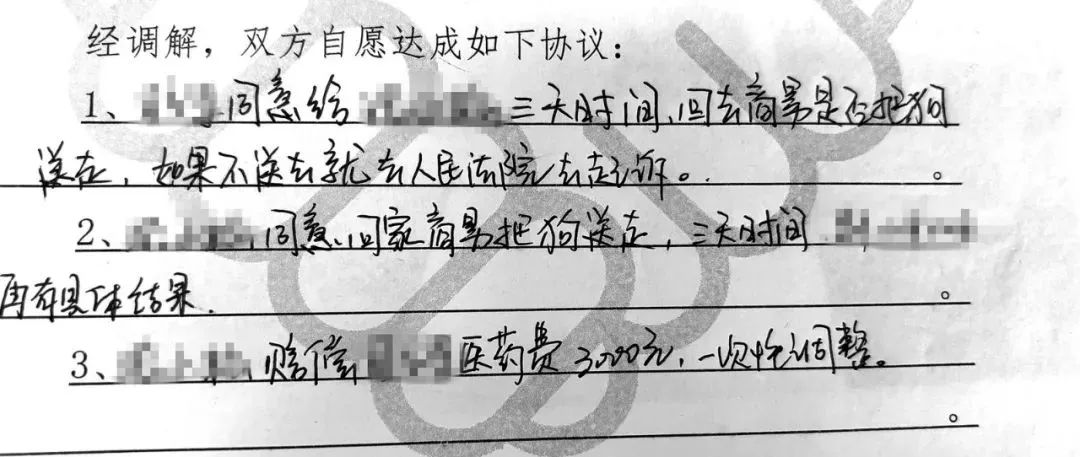 经调解，双方自愿达成如下协议：
1、同意给三天时间,回去商男是否把狗
送走，如果不送去就去人民法院去起诉。.。
2、,同意回家商男把狗送走，三天时间
再有具体结果.。
3、,赔偿医药费3000元,一次性调整。
。